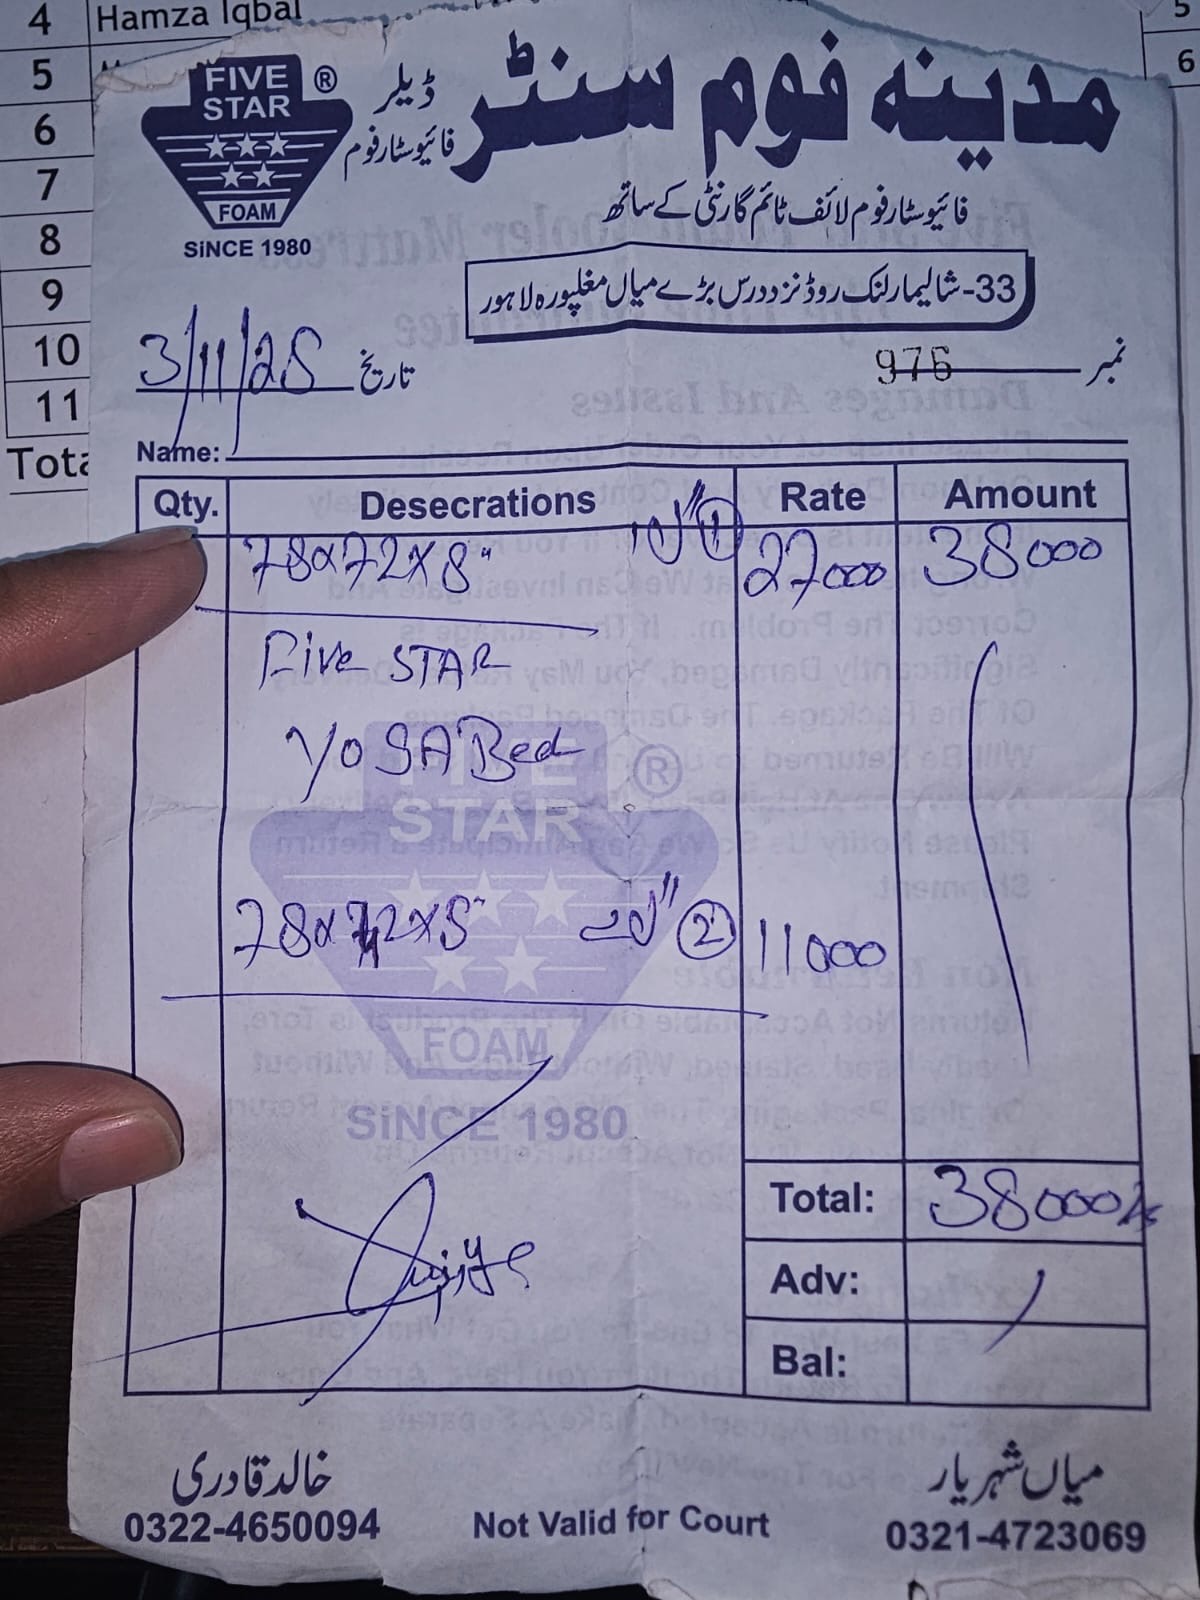 4 Hamza Iqbal
5
5
6
6
7
8
9
10
11
Tota
FIVE STAR ®
FOAM
SiNCE 1980
ڈیلر
فائیوسٹارفوم
مدینہ فوم سنٹر
فائیوسٹارفوم لائف ٹائم گارنٹی کے ساتھ
33-شالیمارلنک روڈ نزد درس بڑے میاں مغلپورہ لاہور
3/11/25 تاریخ
976 نمبر
Name:
Qty. Desecrations Rate Amount
78x72x8" ① 27000 38000
Five STAR
YOSA Bed
78x72x5" ② 11000
FIVE STAR ®
FOAM
SiNCE 1980
Total: 38000
Adv:
Bal:
خالد قادری
0322-4650094
Not Valid for Court
میاں شہریار
0321-4723069